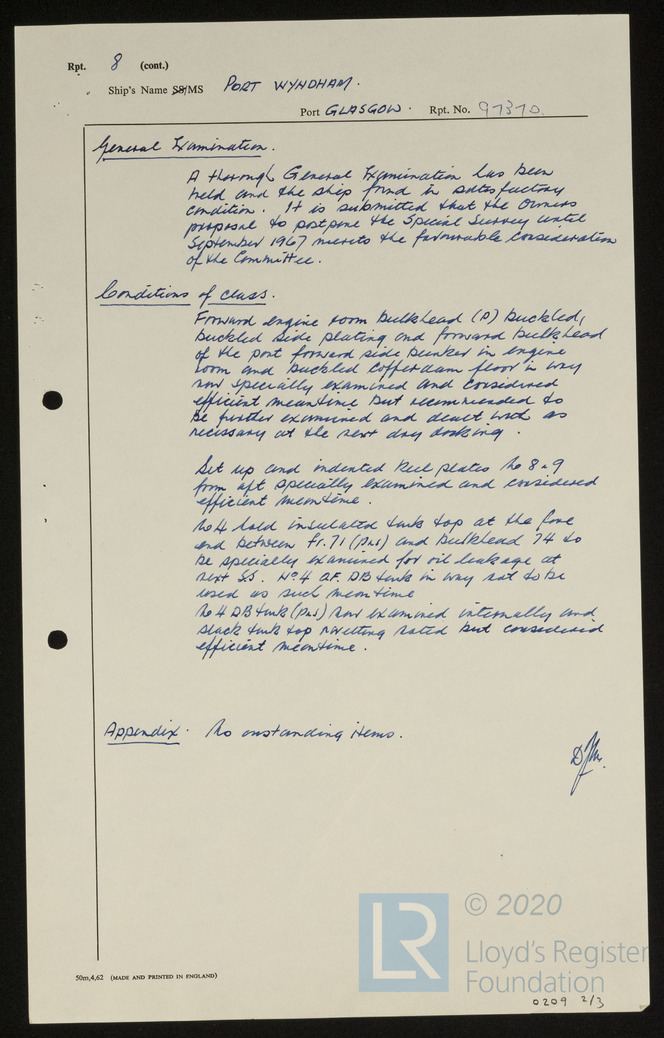 Rpt. 8 (cont.)
Ship's Name SS/MS PORT WYNDHAM.
Port GLASGOW. Rpt. No. 97370.
General Examination.
A thorough General Examination has been
held and the ship found in satisfactory
condition. It is submitted that the Owners
proposal to postpone the Special Survey until
September 1967 merits the favourable consideration
of the Committee.
Conditions of class.
Forward engine room bulkhead (P) buckled,
buckled side plating and forward bulkhead
of the port forward side bunker in engine
room and buckled cofferdam floor in way
now specially examined and considered
efficient meantime but recommended to
be further examined and dealt with as
necessary at the next dry docking.
Set up and indented keel plates No 8 & 9
from aft specially examined and considered
efficient meantime.
No 4 hold insulated tank top at the fore
end between Fr. 71 (P&S) and bulkhead 74 to
be specially examined for oil leakage at
next SS. No. 4 OF. DB tank in way not to be
used as such meantime
No 4 DB tank (P&S) now examined internally and
slack tank top rivetting noted but considered
efficient meantime.
Appendix. No oustanding items.
50m,4,62 (MADE AND PRINTED IN ENGLAND)
LR
© 2020
Lloyd's Register
Foundation
0209 2/3